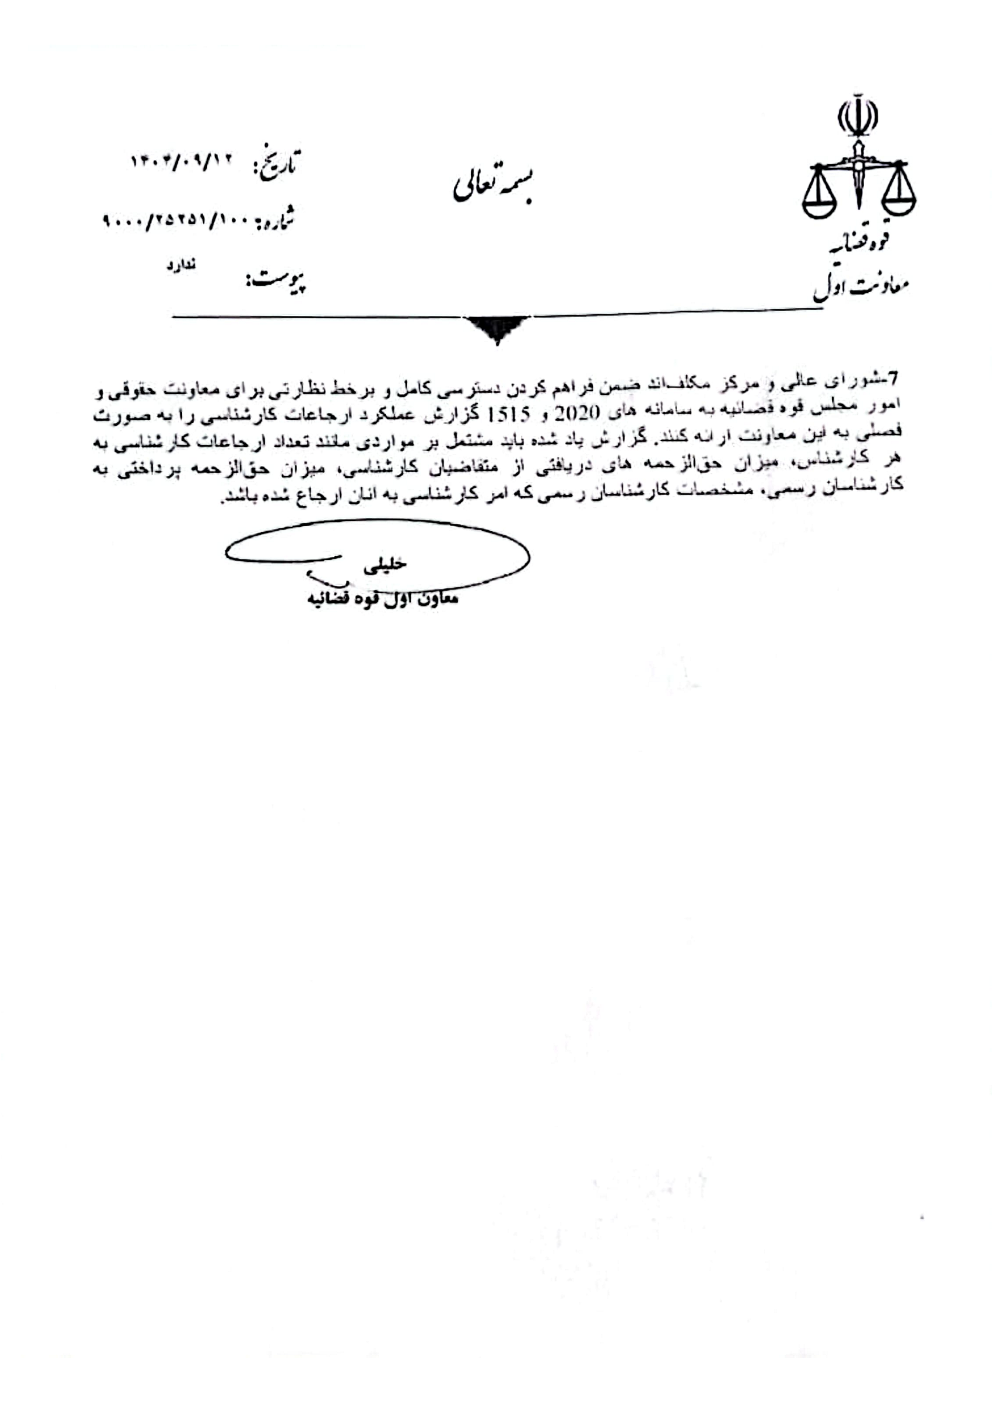 بسمه تعالی
قوه قضائیه
معاونت اول
تاریخ: ۱۴۰۴/۰۹/۱۲
شماره: ۹۰۰۰/۲۵۲۵۱/۱۰۰
پیوست: ندارد
7-شورای عالی و مرکز مکلف‌اند ضمن فراهم کردن دسترسی کامل و برخط نظارتی برای معاونت حقوقی و
امور مجلس قوه قضائیه به سامانه های 2020 و 1515 گزارش عملکرد ارجاعات کارشناسی را به صورت
فصلی به این معاونت ارائه کنند. گزارش یاد شده باید مشتمل بر مواردی مانند تعداد ارجاعات کارشناسی به
هر کارشناس، میزان حق‌الزحمه های دریافتی از متقاضیان کارشناسی، میزان حق‌الزحمه پرداختی به
کارشناسان رسمی، مشخصات کارشناسان رسمی که امر کارشناسی به انان ارجاع شده باشد.
خلیلی
معاون اول قوه قضائیه